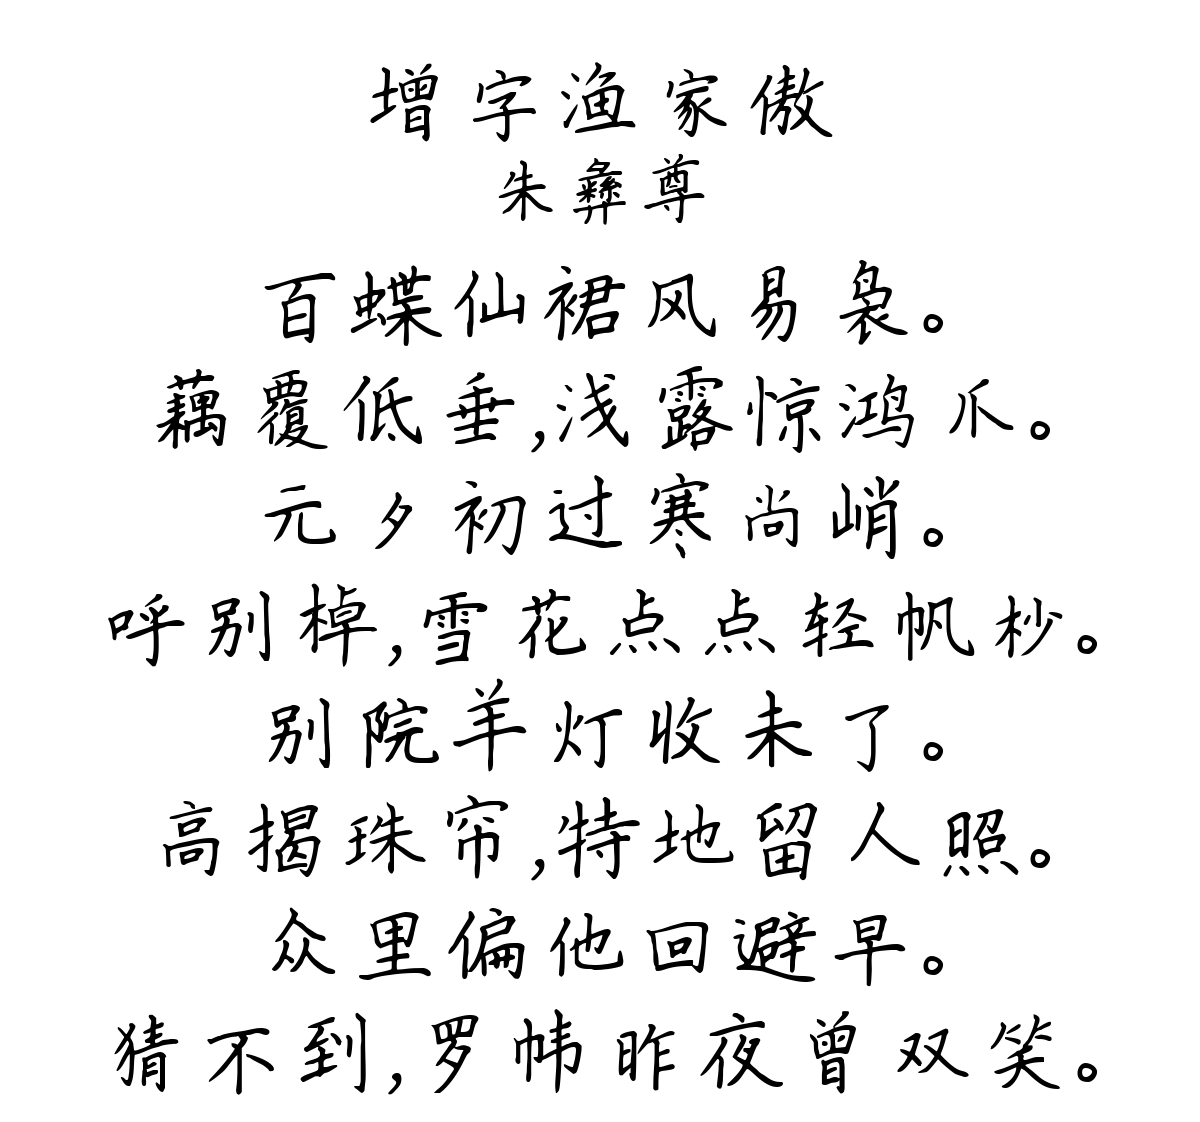 增字渔家傲
朱彝尊
百蝶仙裙风易袅。
藕覆低垂,浅露惊鸿爪。
元夕初过寒尚峭。
呼别棹,雪花点点轻帆杪。
别院羊灯收未了。
高揭珠帘,特地留人照。
众里偏他回避早。
猜不到,罗帏昨夜曾双笑。